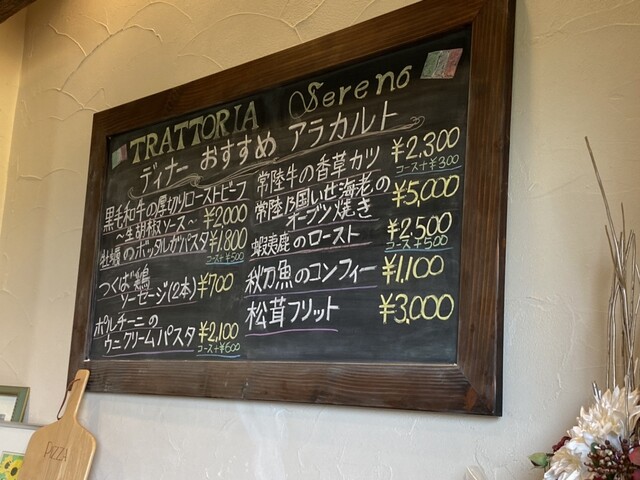 TRATTORIA Sereno
ディナー おすすめ アラカルト
黒毛和牛の厚切りローストビーフ
〜生胡椒ソース〜 ¥2000
牡蠣のボッタルガパスタ ¥1,800
コース+¥500
つくば鶏
ソーセージ(2本) ¥700
ポルチーニの
ウニクリームパスタ ¥2,100
コース+¥600
常陸牛の香草カツ ¥2,300
コース+¥300
常陸乃国いせ海老の
オーブン焼き ¥5,000
蝦夷鹿のロースト ¥2,500
コース+¥500
秋刀魚のコンフィー ¥1,100
松茸フリット ¥3,000
PIZZA